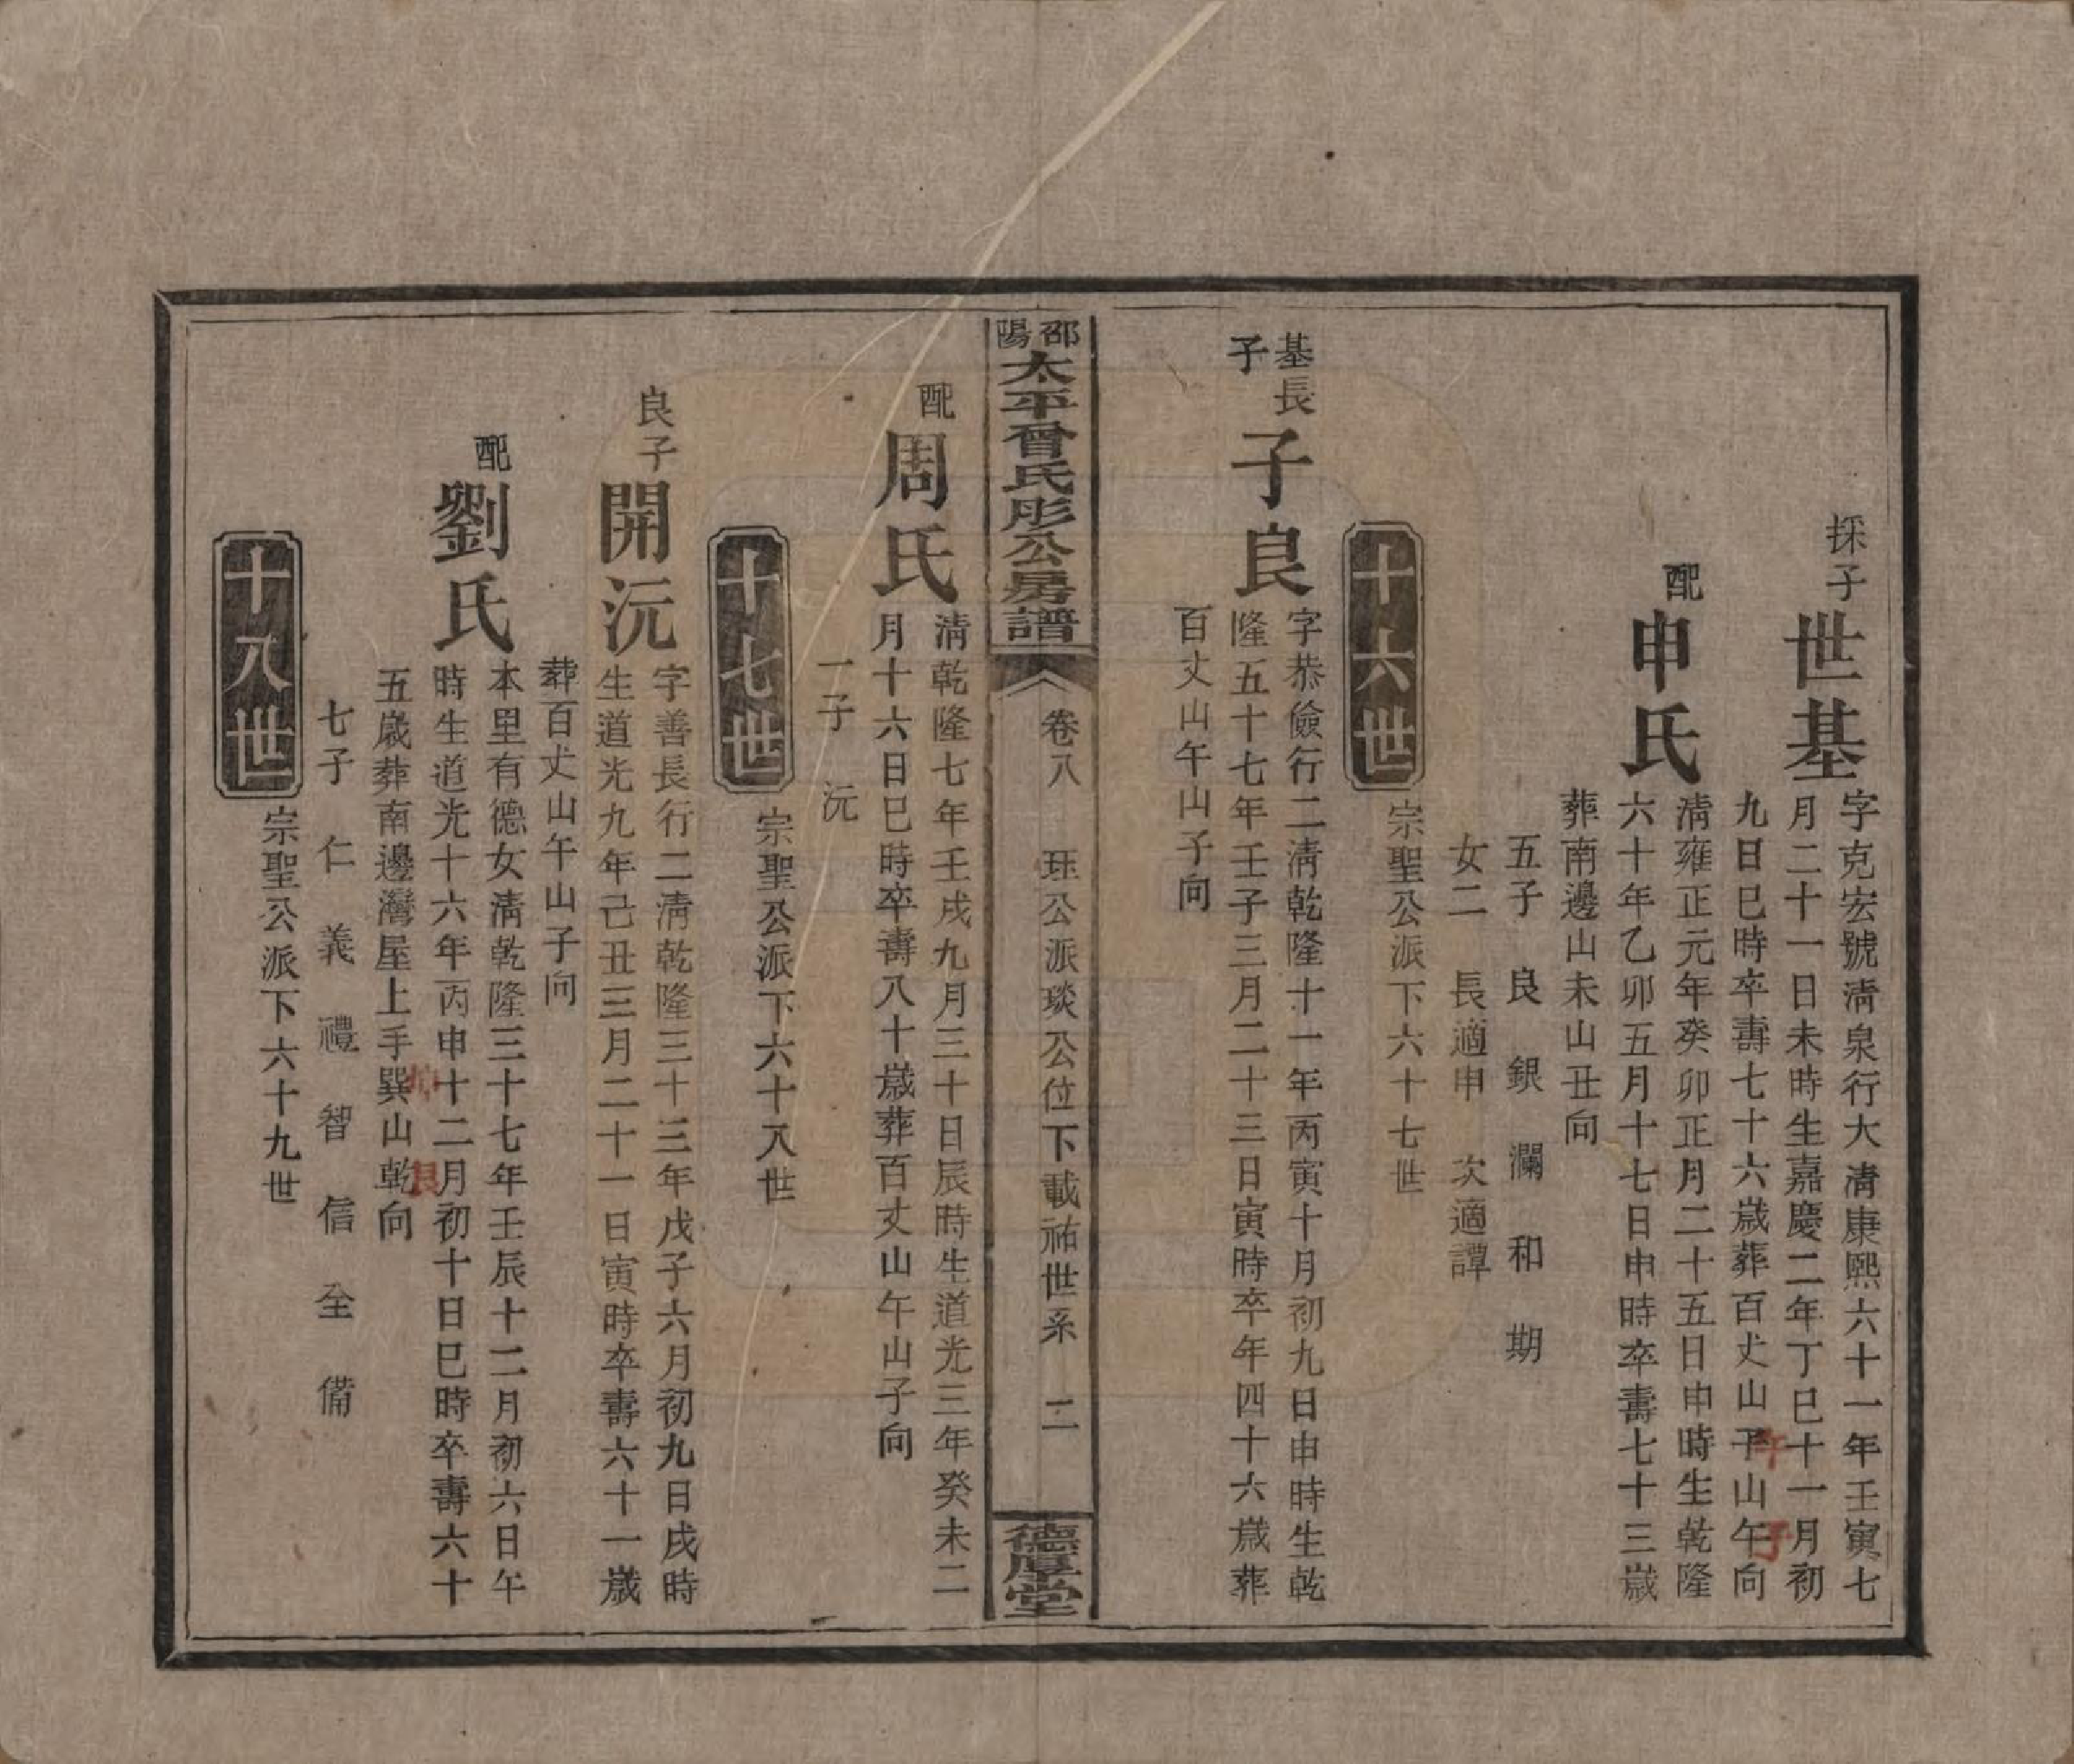 採子
世基
字克宏號清泉行大清康熙六十一年壬寅七
月二十一日未時生嘉慶二年丁巳十一月初
九日巳時卒壽七十六歲葬百丈山子山午向
午　子
配
申氏
清雍正元年癸卯正月二十五日申時生乾隆
六十年乙卯五月十七日申時卒壽七十三歲
葬南邊山未山丑向
五子　良　銀　瀾　和　期
女二　長適申　次適譚
十六世
宗聖公派下六十七世
基長
子
子良
字恭儉行二清乾隆十一年丙寅十月初九日申時生乾
隆五十七年壬子三月二十三日寅時卒年四十六歲葬
百丈山午山子向
邵陽
太平曾氏彤公房譜
卷八　珏公派琰公位下載祐世系　二
德厚堂
配
周氏
清乾隆七年壬戌九月三十日辰時生道光三年癸未二
月十六日巳時卒壽八十歲葬百丈山午山子向
一子　沅
十七世
宗聖公派下六十八世
良子
開沅
字善長行二清乾隆三十三年戊子六月初九日戌時
生道光九年己丑三月二十一日寅時卒壽六十一歲
葬百丈山午山子向
配
劉氏
本里有德女清乾隆三十七年壬辰十二月初六日午
時生道光十六年丙申十二月初十日巳時卒壽六十
五歲葬南邊灣屋上手巽山乾向
七子　仁　義　禮　智　信　全　備
十八世
宗聖公派下六十九世